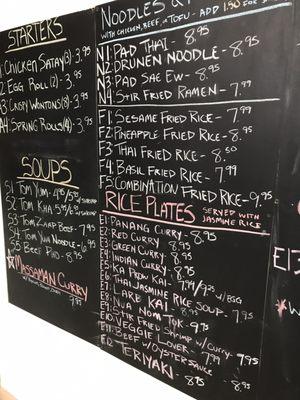 STARTERS
1. CHICKEN SATAY(3)- 3.95
2. EGG ROLL (2)- 3.95
A3 CRISPY WONTONS(8)- 3.95
A4 SPRING ROLLS(4)- 3.95
SOUPS
S1 TOM YUM- 4.95/5.95
S2 TOM KHA
S3 TOM ZAAP BEEF- 7.95
S4 TOM YUM NOODLE- 6.95
S5 BEEF PHO- 8.95
MASSAMAN CURRY
7.99
NOODLES &
WITH CHICKEN, BEEF, OR TOFU - ADD 1.50 FOR
N1 PAD THAI - 8.95
N2 DRUNEN NOODLE - 8.95
N3 PAD SAE EW - 8.95
N4 STIR FRIED RAMEN - 7.99
F1 SESAME FRIED RICE - 7.99
F2 PINEAPPLE FRIED RICE - 8.95
F3 THAI FRIED RICE - 8.50
F4 BASIL FRIED RICE - 7.99
F5 COMBINATION FRIED RICE - 9.95
RICE PLATES SERVED WITH JASMINE RICE
E1 PANANG CURRY - 8.95
E2 RED CURRY 8.95
E3 GREEN CURRY 8.95
E4 INDIAN CURRY 8.95
E5 KA PROW KAI - 7.99/9.25 W/EGG
E6 THAI JASMINE RICE SOUP - 7.95
E7 LARB KAI - 8.95
E8 NUA NOM TOK - 9.75
E9 STIR FRIED SHRIMP W/CURRY- 9.95
E10 VEGGIE LOVER - 7.99
E11 BEEF W/OYSTER SAUCE - 8.95
E12 TERIYAKI - 8.75
E13